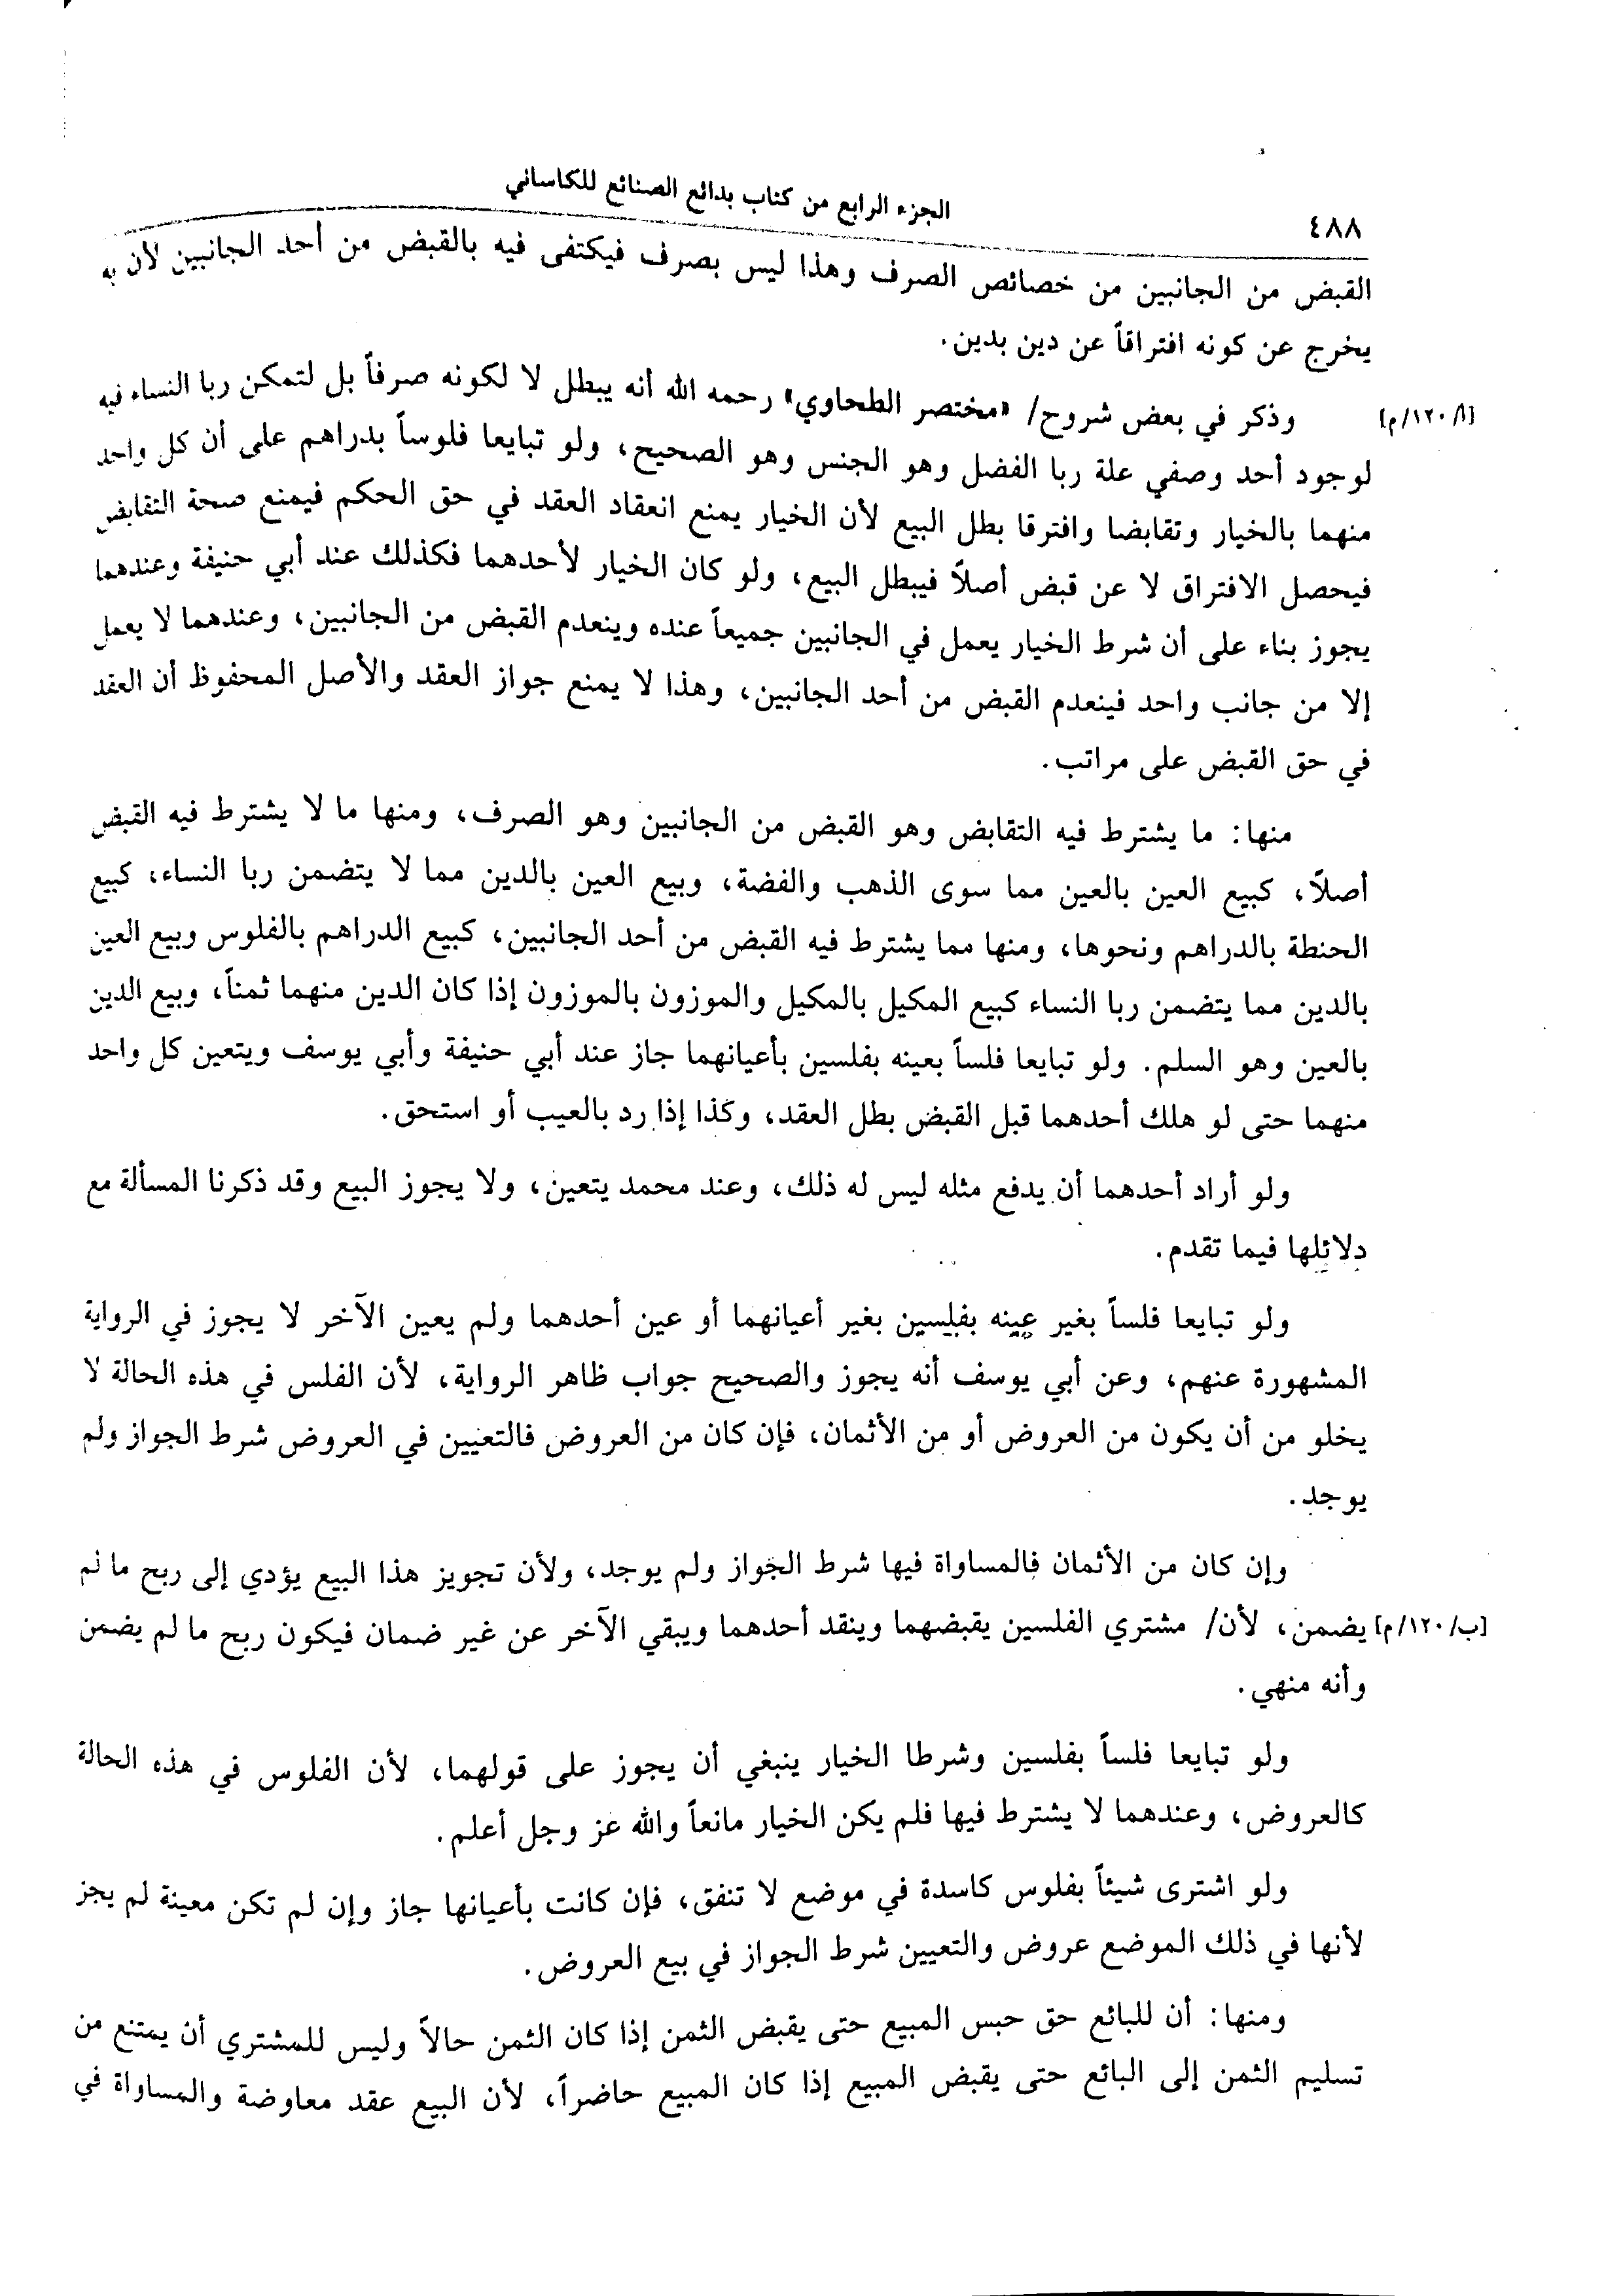 ٤٨٨
الجزء الرابع من كتاب بدائع الصنائع للكاساني
القبض من الجانبين من خصائص الصرف وهذا ليس بصرف فيكتفى فيه بالقبض من أحد الجانبين لأن به
يخرج عن كونه افتراقاً عن دين بدين.
[أ/١٢٠/م] وذكر في بعض شروح/ «مختصر الطحاوي» رحمه الله أنه يبطل لا لكونه صرفاً بل لتمكن ربا النساء فيه
لوجود أحد وصفي علة ربا الفضل وهو الجنس وهو الصحيح، ولو تبايعا فلوساً بدراهم على أن كل واحد
منهما بالخيار وتقابضا وافترقا بطل البيع لأن الخيار يمنع انعقاد العقد في حق الحكم فيمنع صحة التقابض
فيحصل الافتراق لا عن قبض أصلاً فيبطل البيع، ولو كان الخيار لأحدهما فكذلك عند أبي حنيفة وعندهما
يجوز بناء على أن شرط الخيار يعمل في الجانبين جميعاً عنده وينعدم القبض من الجانبين، وعندهما لا يعمل
إلا من جانب واحد فينعدم القبض من أحد الجانبين، وهذا لا يمنع جواز العقد والأصل المحفوظ أن العقد
في حق القبض على مراتب.
منها: ما يشترط فيه التقابض وهو القبض من الجانبين وهو الصرف، ومنها ما لا يشترط فيه القبض
أصلاً، كبيع العين بالعين مما سوى الذهب والفضة، وبيع العين بالدين مما لا يتضمن ربا النساء، كبيع
الحنطة بالدراهم ونحوها، ومنها مما يشترط فيه القبض من أحد الجانبين، كبيع الدراهم بالفلوس وبيع العين
بالدين مما يتضمن ربا النساء كبيع المكيل بالمكيل والموزون بالموزون إذا كان الدين منهما ثمناً، وبيع الدين
بالعين وهو السلم. ولو تبايعا فلساً بعينه بفلسين بأعيانهما جاز عند أبي حنيفة وأبي يوسف ويتعين كل واحد
منهما حتى لو هلك أحدهما قبل القبض بطل العقد، وكذا إذا رد بالعيب أو استحق.
ولو أراد أحدهما أن يدفع مثله ليس له ذلك، وعند محمد يتعين، ولا يجوز البيع وقد ذكرنا المسألة مع
دلائلها فيما تقدم.
ولو تبايعا فلساً بغير عينه بفلسين بغير أعيانهما أو عين أحدهما ولم يعين الآخر لا يجوز في الرواية
المشهورة عنهم، وعن أبي يوسف أنه يجوز والصحيح جواب ظاهر الرواية، لأن الفلس في هذه الحالة لا
يخلو من أن يكون من العروض أو من الأثمان، فإن كان من العروض فالتعيين في العروض شرط الجواز ولم
يوجد.
وإن كان من الأثمان فالمساواة فيها شرط الجواز ولم يوجد، ولأن تجويز هذا البيع يؤدي إلى ربح ما لم
[ب/١٢٠/م] يضمن، لأن/ مشتري الفلسين يقبضهما وينقد أحدهما ويبقي الآخر عن غير ضمان فيكون ربح ما لم يضمن
وأنه منهي.
ولو تبايعا فلساً بفلسين وشرطا الخيار ينبغي أن يجوز على قولهما، لأن الفلوس في هذه الحالة
كالعروض، وعندهما لا يشترط فيها فلم يكن الخيار مانعاً والله عز وجل أعلم.
ولو اشترى شيئاً بفلوس كاسدة في موضع لا تنفق، فإن كانت بأعيانها جاز وإن لم تكن معينة لم يجز
لأنها في ذلك الموضع عروض والتعيين شرط الجواز في بيع العروض.
ومنها: أن للبائع حق حبس المبيع حتى يقبض الثمن إذا كان الثمن حالاً وليس للمشتري أن يمتنع من
تسليم الثمن إلى البائع حتى يقبض المبيع إذا كان المبيع حاضراً، لأن البيع عقد معاوضة والمساواة في